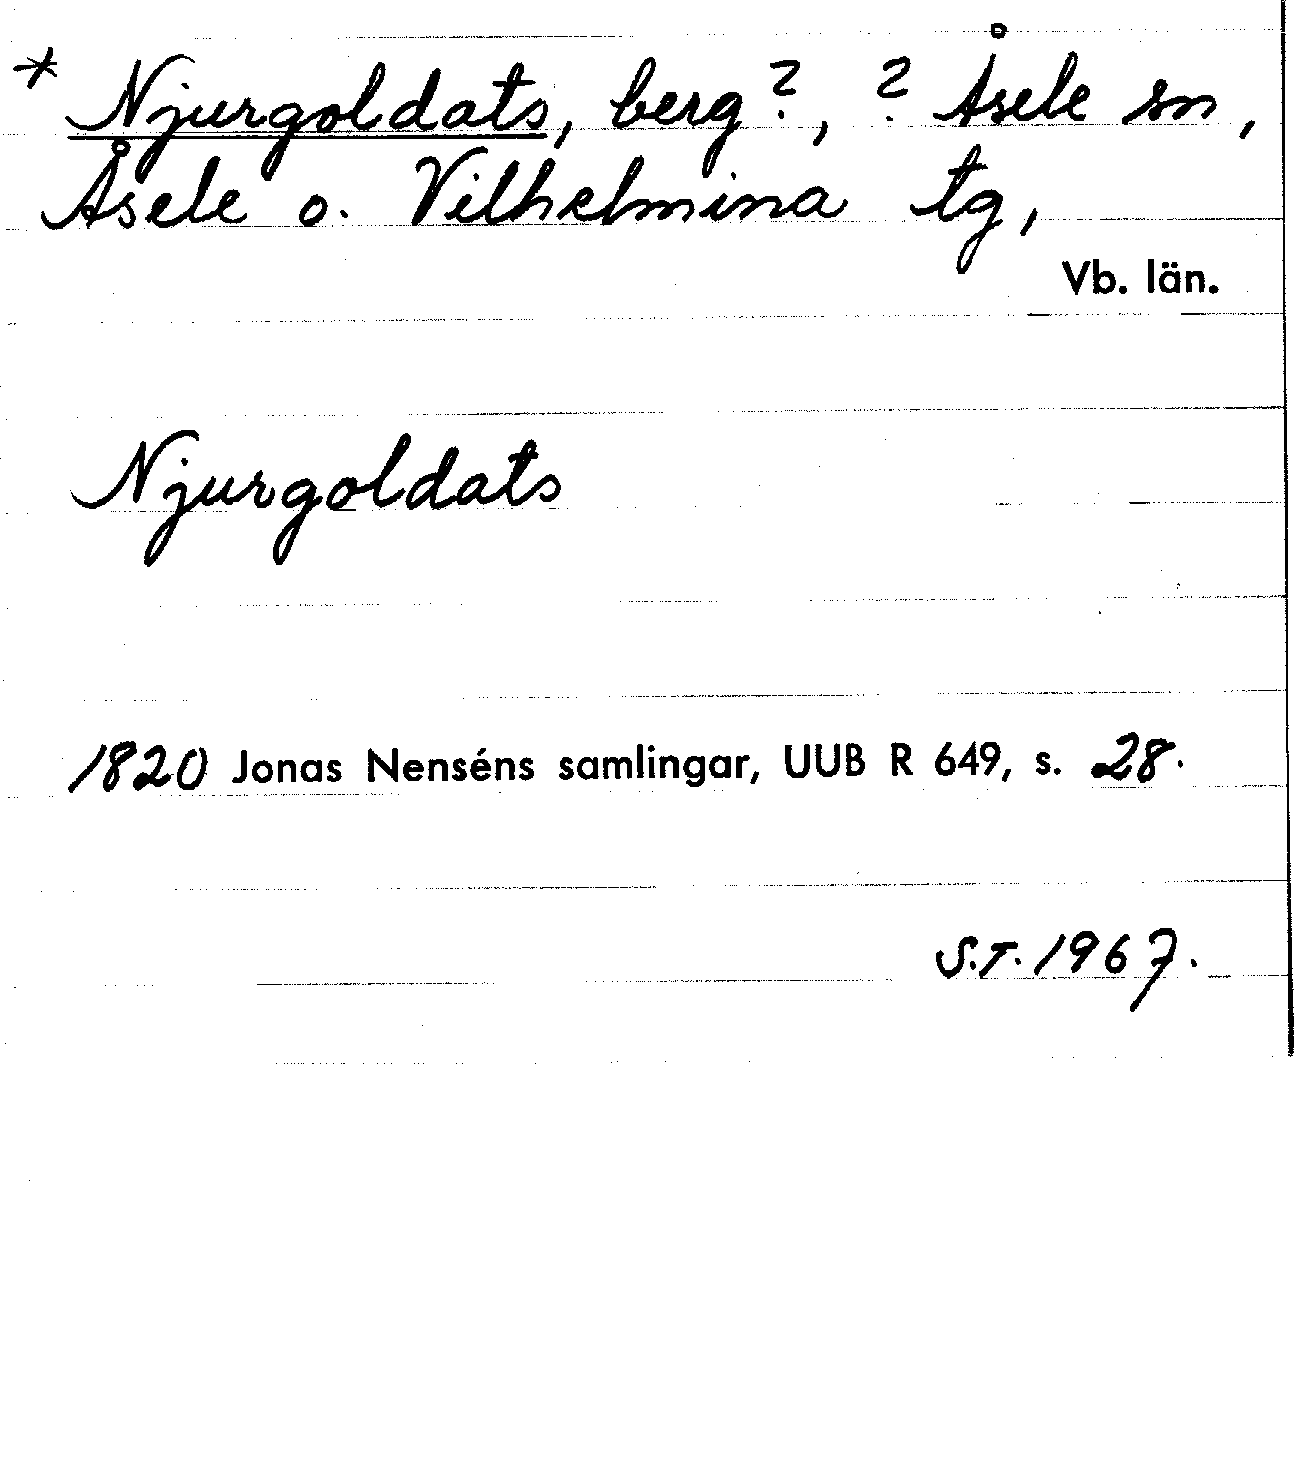 * Njurgoldats, berg?, ? Åsele sn,
Åsele o. Vilhelmina tg,
Vb. län.
Njurgoldats
1820 Jonas Nenséns samlingar, UUB R 649, s. 28.
S.T. 1967.